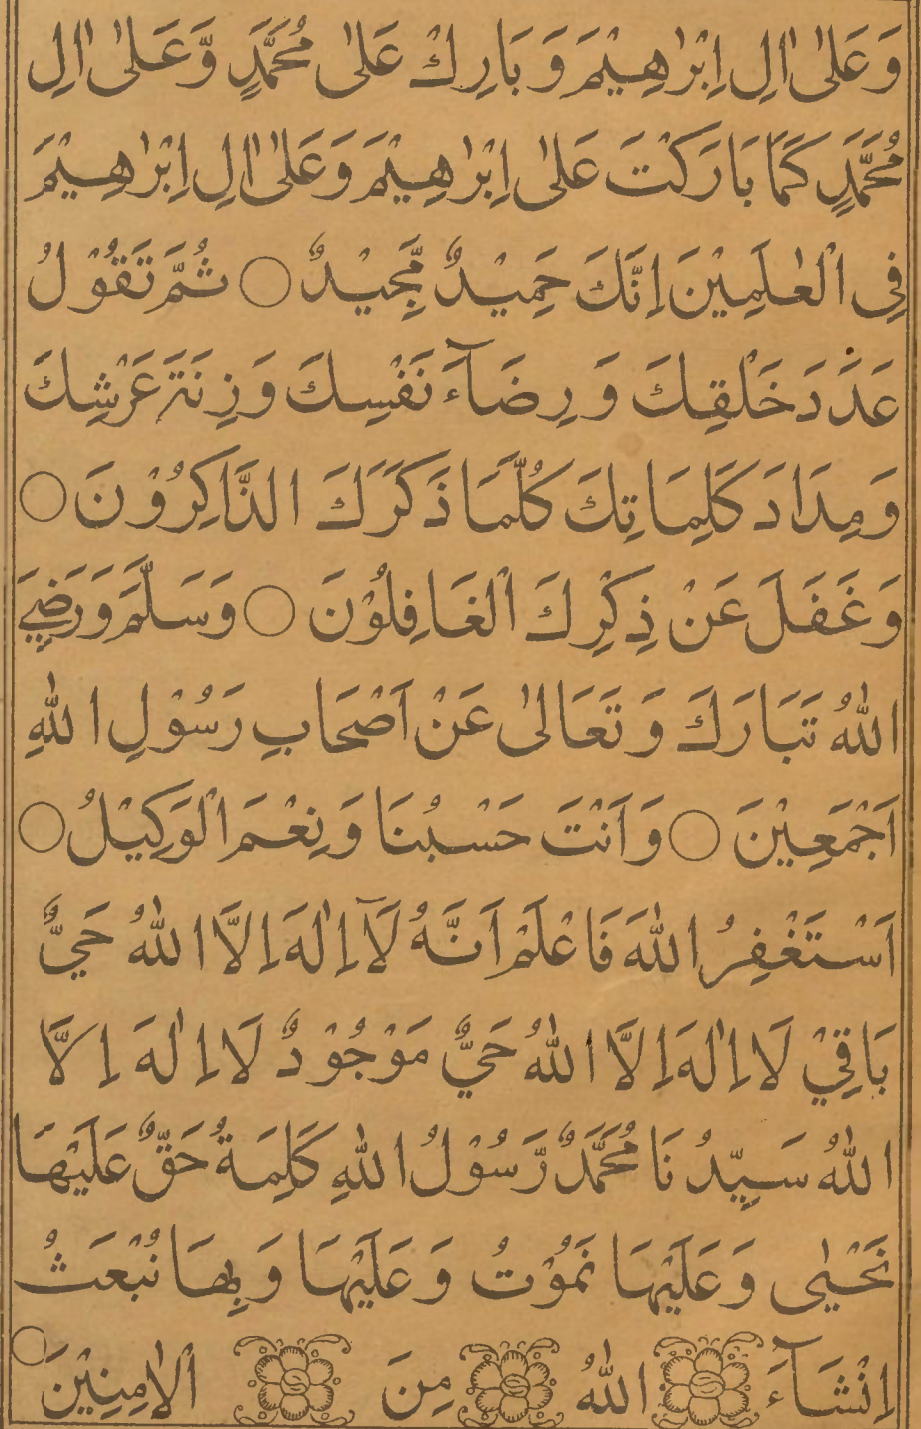 وَعَلٰى اٰلِ اِبْرٰهِيْمَ وَ بَارِكْ عَلٰى مُحَمَّدٍ وَّعَلٰى اٰلِ
مُحَمَّدٍ كَمَا بَارَكْتَ عَلٰى اِبْرٰهِيْمَ وَعَلٰى اٰلِ اِبْرٰهِيْمَ
فِى الْعٰلَمِيْنَ اِنَّكَ حَمِيْدٌ مَّجِيْدٌ ○ ثُمَّ تَقُوْلُ
عَدَدَ خَلْقِكَ وَ رِضَآءَ نَفْسِكَ وَ زِنَةَ عَرْشِكَ
وَ مِدَادَ كَلِمَاتِكَ كُلَّمَا ذَكَرَكَ الذَّاكِرُوْنَ ○
وَ غَفَلَ عَنْ ذِكْرِكَ الْغَافِلُوْنَ ○ وَسَلَّمَ وَرَضِيَ
اللهُ تَبَارَكَ وَ تَعَالٰى عَنْ اَصْحَابِ رَسُوْلِ اللهِ
اَجْمَعِيْنَ ○ وَ اَنْتَ حَسْبُنَا وَ نِعْمَ الْوَكِيْلُ ○
اَسْتَغْفِرُ اللهَ فَاعْلَمْ اَنَّهُ لَآ اِلٰهَ اِلَّا اللهُ حَيٌّ
بَاقِيْ لَا اِلٰهَ اِلَّا اللهُ حَيٌّ مَوْجُوْدٌ لَا اِلٰهَ اِلَّا
اللهُ سَيِّدُنَا مُحَمَّدٌ رَّسُوْلُ اللهِ كَلِمَةُ حَقٍّ عَلَيْهَا
نَحْيٰى وَ عَلَيْهَا نَمُوْتُ وَ عَلَيْهَا وَ بِهَا نُبْعَثُ
اِنْشَآءَ اللهُ مِنَ الْاٰمِنِيْنَ ○